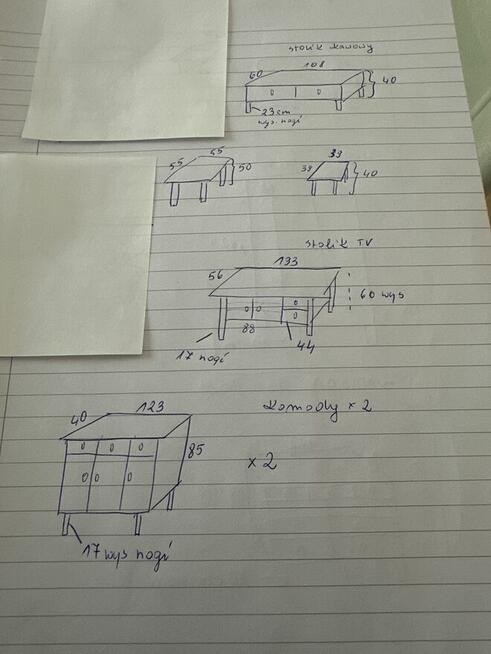 stolik kawowy
60 108
40
23cm
wys. nogi
55 55
50
33
38
40
stolik TV
133
56
60 wys
88
44
17 nogi
Komody x 2
40 123
85
x 2
17 wys nogi